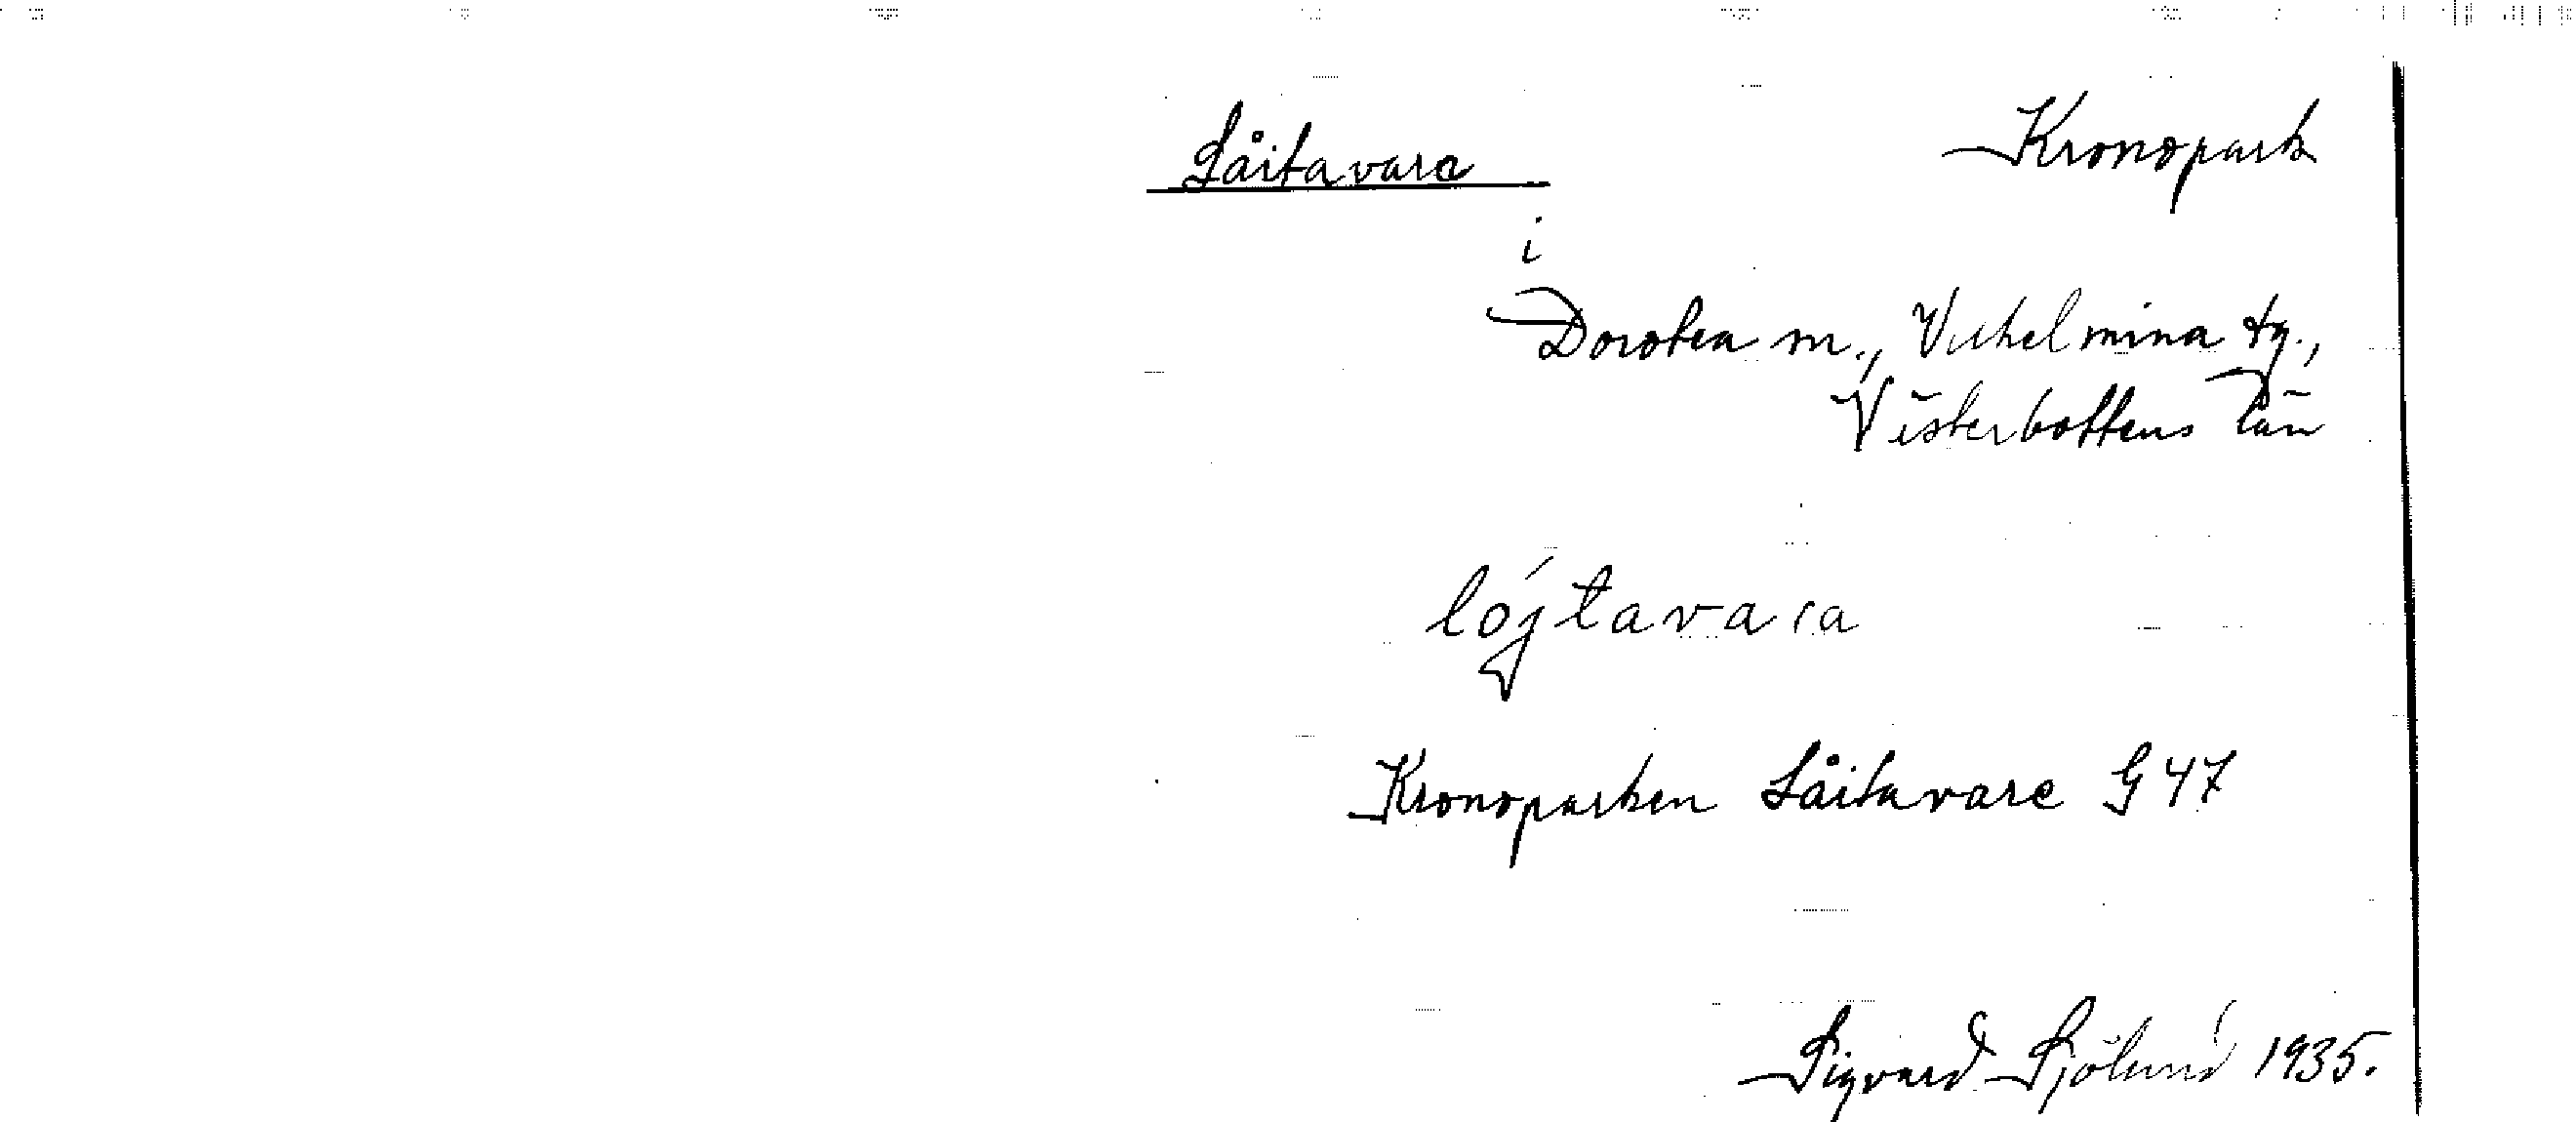 Låitavare Kronopark
i
Dorotea m., Vilhelmina tg.,
Västerbottens län
lójtavara
Kronoparken Låitavare G 47
Sigvard Sjölund 1935.